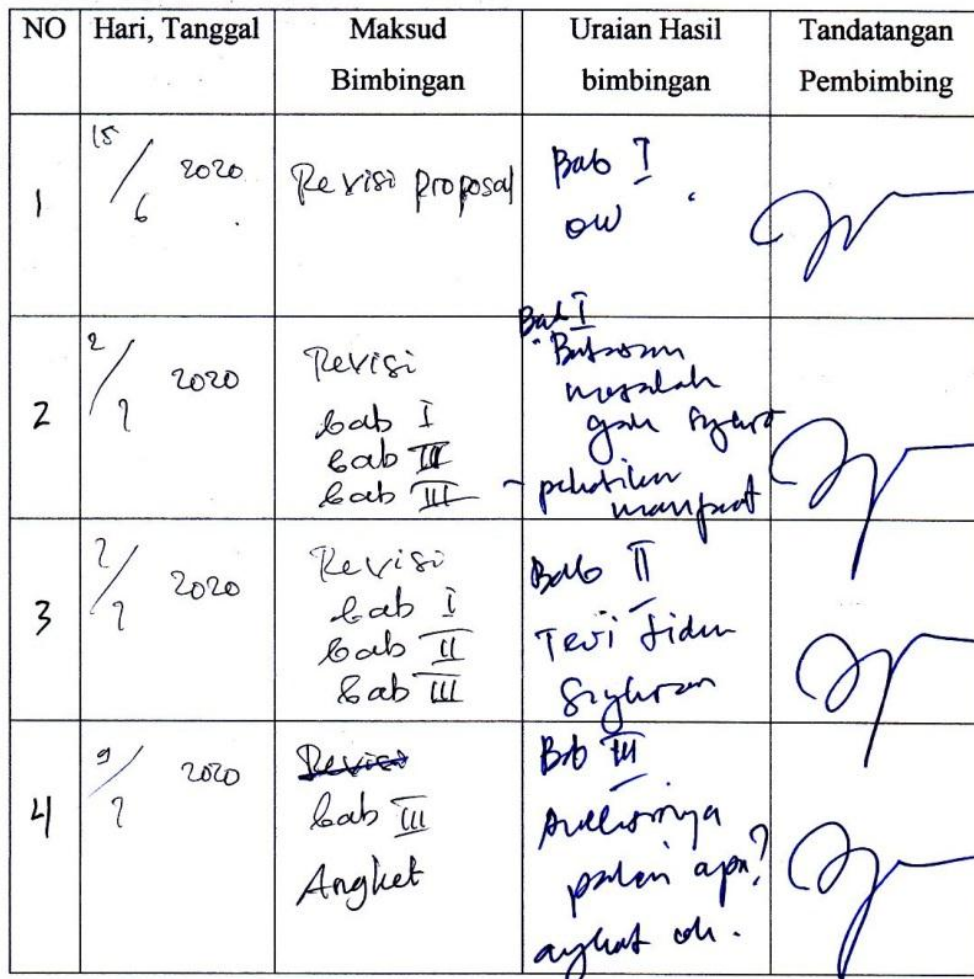 NO Hari, Tanggal Maksud Bimbingan Uraian Hasil bimbingan Tandatangan Pembimbing
1
15/6 2020
Revisi proposal
Bab I
2
2/7 2020
Revisi
bab I
bab II
bab III
Bab I
Batasan
masalah
perhatikan
manfaat
3
7/7 2020
Revisi
bab I
bab II
bab III
Bab II
Teori
4
9/7 2020
Revisi
bab III
Angket
Bab III
Analisisnya
pakai apa?
angket ok.